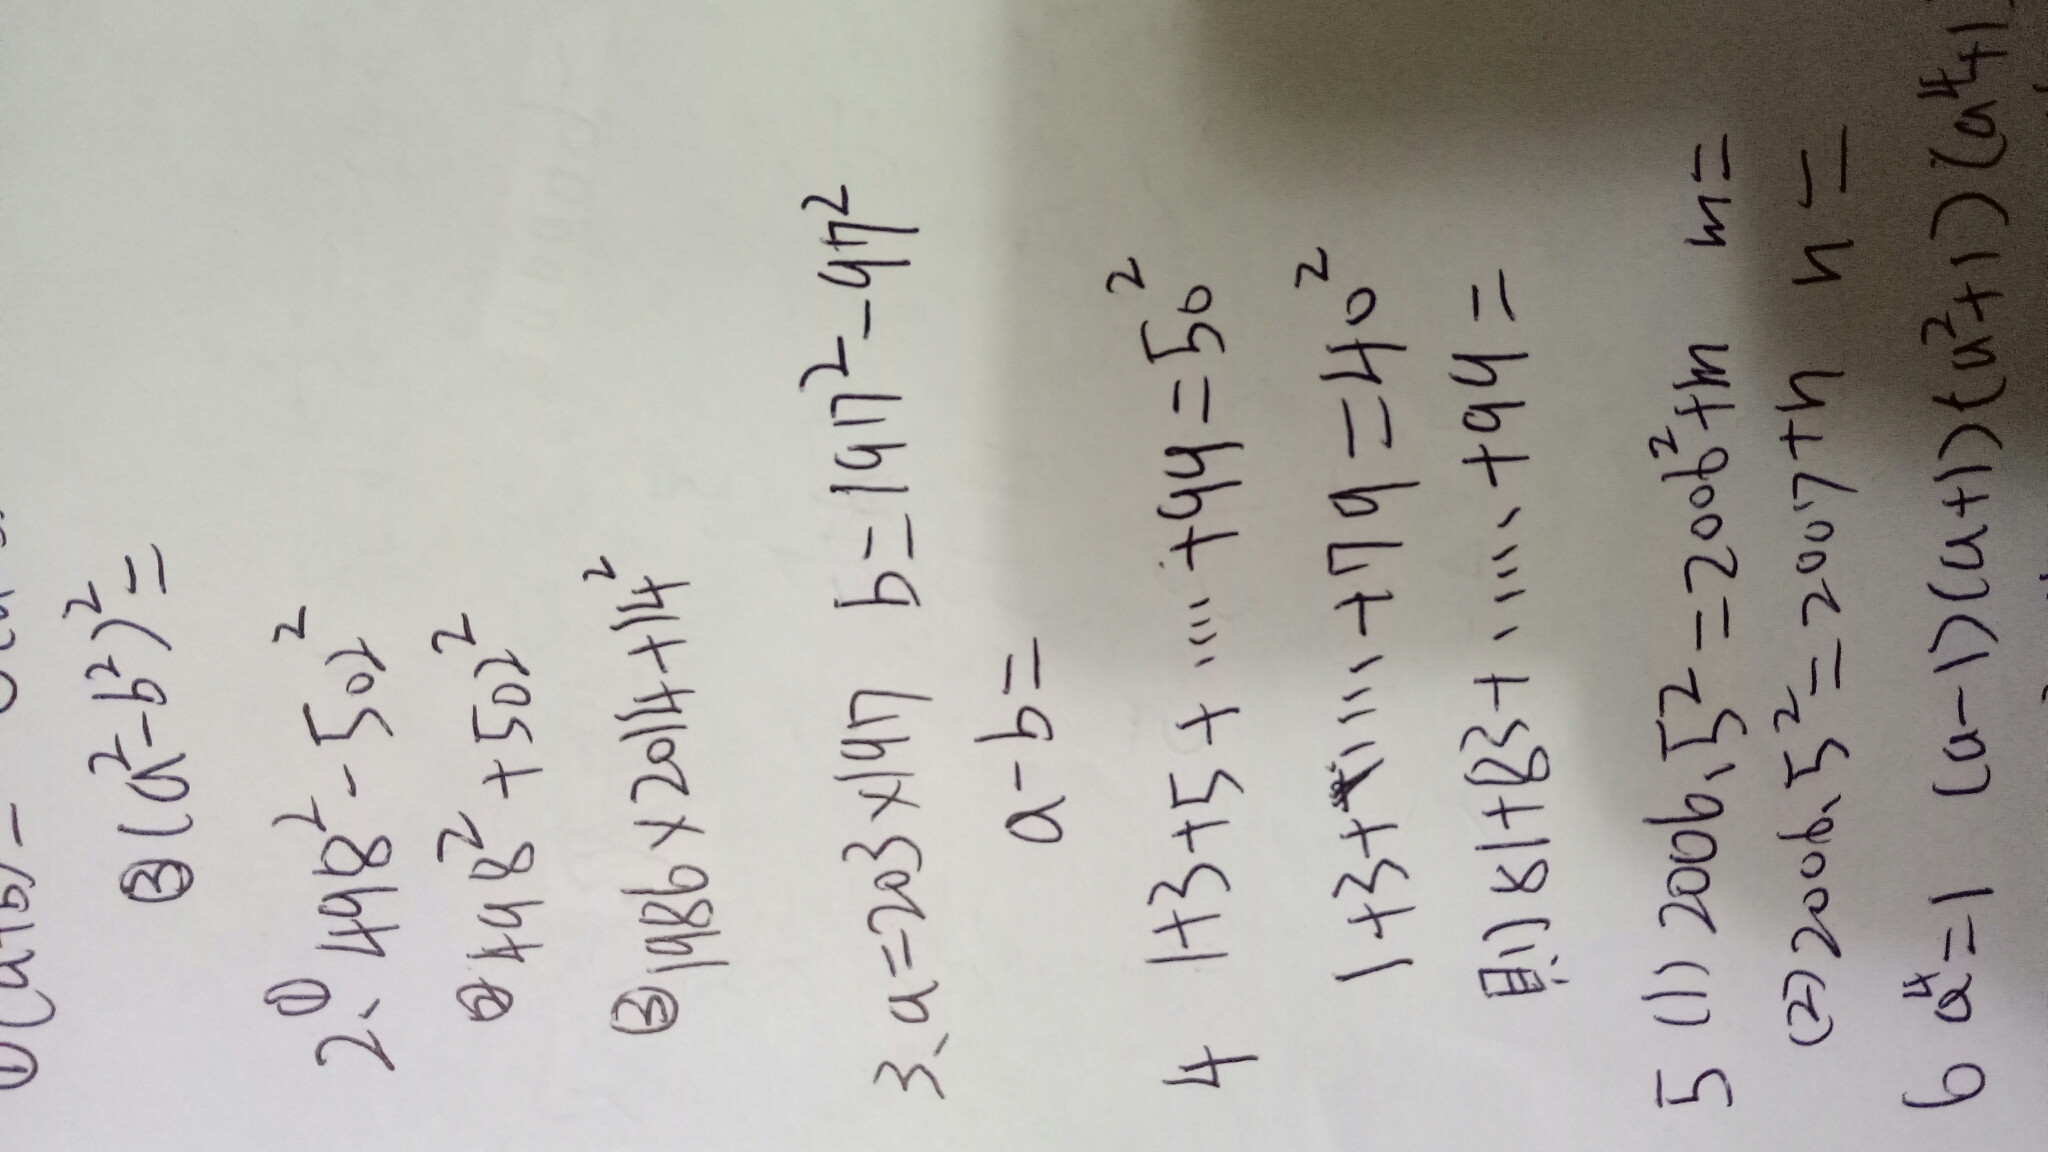 ①(a+b)=
③(a²-b²)²=
2、①498²-502²
②498²+502²
③1986×2014+14²
3、a=203×197 b=197²-97²
a-b=
4 1+3+5+……+99=50²
1+3+……+79=40²
则81+83+……+99=
5 (1)2006.5²=2006²+m m=
(2)2006.5²=2007+n n=
6 a⁴=1 (a-1)(a+1)(a²+1)(a⁴+1